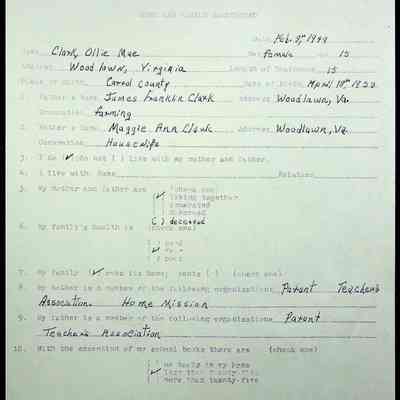 HOME AND FAMILY BACKGROUND
Date Feb. 9, 1949
Name Clark, Ollie Mae Sex female Age 15
Address Woodlawn, Virginia Length of Residence 15
Place of Birth Carrol county Date of Birth April 18th
1. Father's Name James Franklin Clark Address Woodlawn, Va.
Occupation farming
2. Mother's Name Maggie Ann Clark Address Woodlawn, Va.
Occupation Housewife
3. I do (✓) do not ( ) live with my mother and father.
4. I live with: Name Relation
5. My mother and father are (check one)
(✓) living together
( ) separated
( ) divorced
( ) deceased
6. My family's health is (check one)
( ) good
(✓) fair
( ) poor
7. My family (✓) owns its home; rents ( ) (check one)
8. My mother is a member of the following organizations Parent Teacher's
Association. Home Mission
9. My father is a member of the following organizations Parent
Teacher's Association
10. With the exception of my school books there are (check one)
( ) no books in my home
(✓) less than twenty-five
( ) more than twenty-five